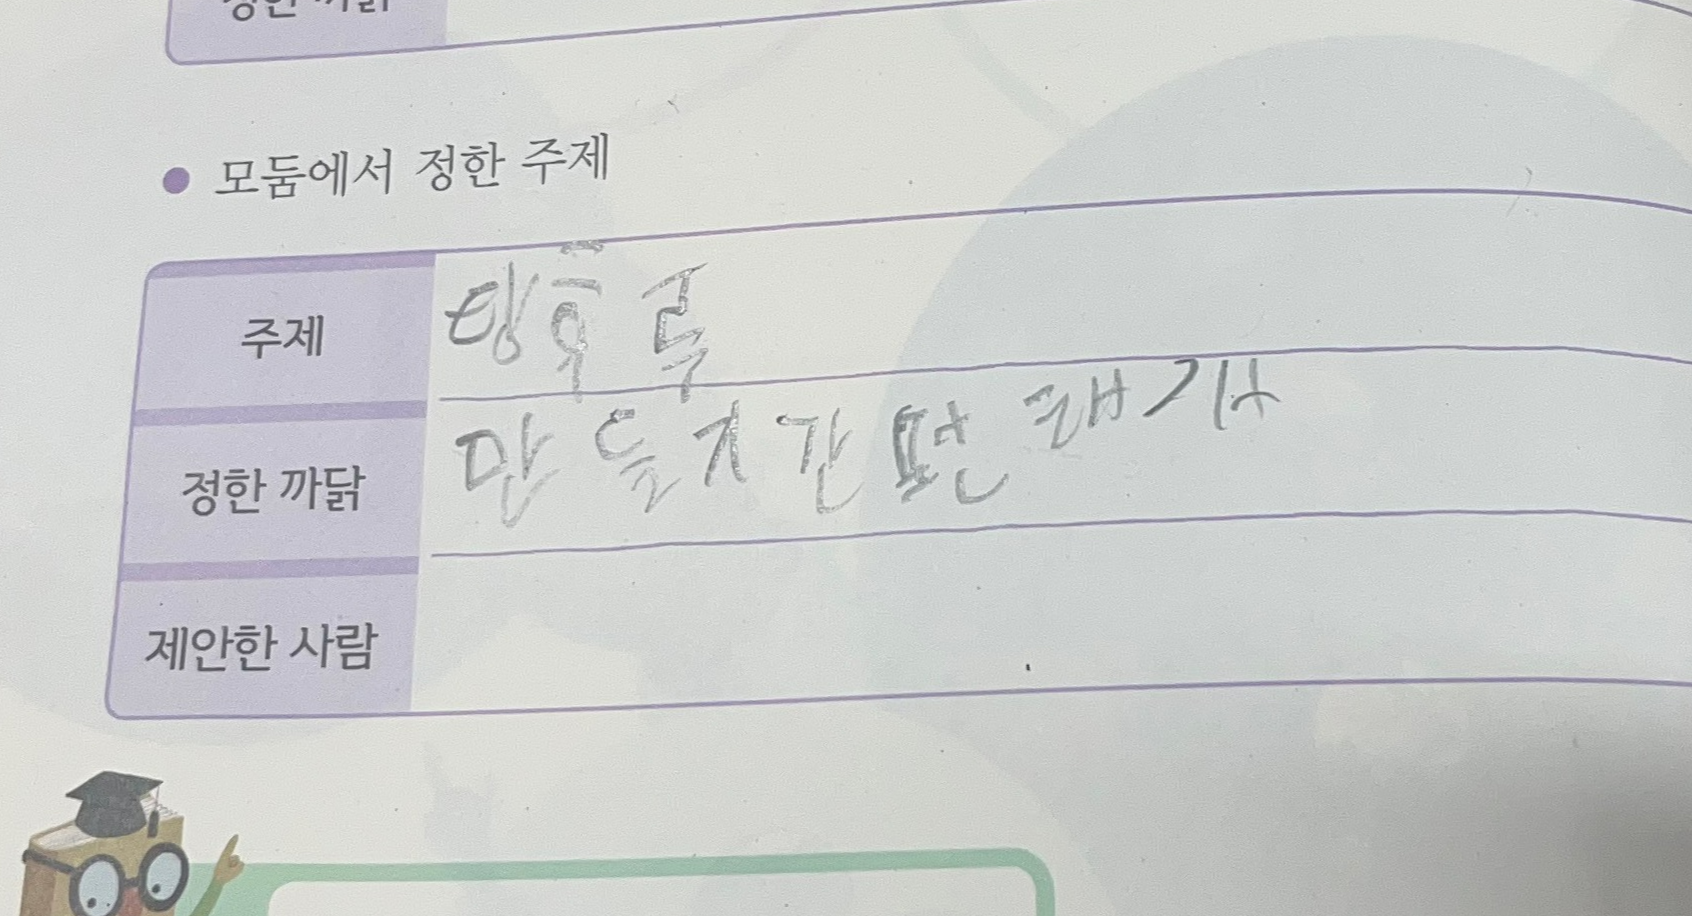 정한 까닭
● 모둠에서 정한 주제
주제 탕후루
정한 까닭 만들지 간편
제안한 사람